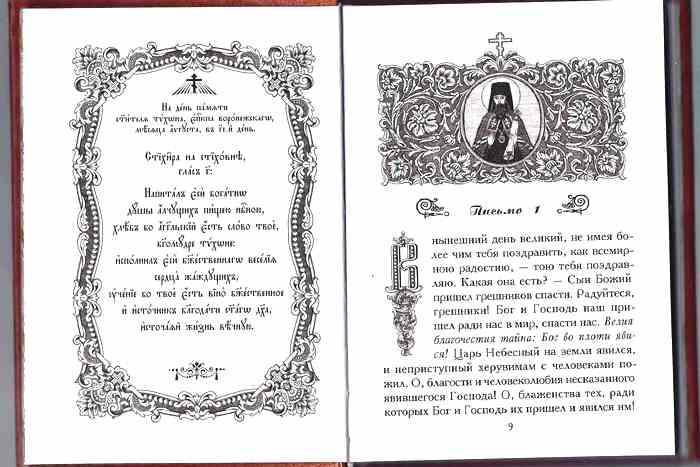 На де́нь па́мѧти
ст҃и́телѧ тѵ́хѡна, є҆пⷭ҇кпа воро́нежскагѡ,
мѣ́сѧца а҆́ѵгꙋста, въ г҃і‑й де́нь.
Стїхи̑ра на стїхо́внѣ,
гла́съ и҃:
Напита́лъ є҆сѝ бога́тнѡ
дꙋ́шы а҆́лчꙋщихъ пи́щею нбⷭ҇ною,
хлѣ́бъ бо а҆́гг҃льскїй є҆́сть сло́во твоѐ,
бг҃омꙋ́дре тѵ́хѡне:
и҆спо́лнилъ є҆сѝ бж҃е́ственнагѡ весе́лїѧ
сердца̀ жа́ждꙋщихъ,
ᲂу҆че́нїе бо твоѐ є҆́сть вїно̀ бж҃е́ственное
и҆ и҆сто́чникъ благода́ти ст҃а́гѡ дх҃а,
и҆сточа́ѧй жи́знь вѣ́чнꙋю.
Письмо 1
В нынешний день великий, не имея бо-
лее чем тебя поздравить, как всемир-
ною радостию, — тою тебя поздрав-
ляю. Какая она есть? — Сын Божий
пришел грешников спасти. Радуйтеся,
грешники! Бог и Господь наш при-
шел ради нас в мир, спасти нас. Велия
благочестия тайна: Бог во плоти яви-
ся! Царь Небесный на земли явился,
и неприступный херувимам с человеками по-
жил. О, благости и человеколюбия несказанного
явившегося Господа! О, блаженства тех, ради
которых Бог и Господь их пришел и явился им!
9